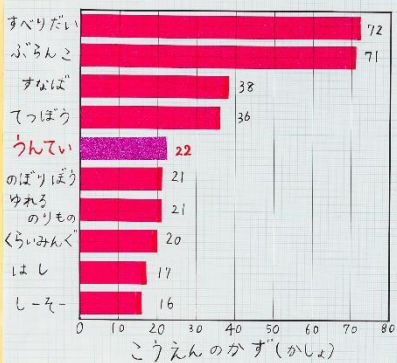 すべりだい 72
ぶらんこ 71
すなば 38
てつぼう 36
うんてい 22
のぼりぼう 21
ゆれる
のりもの 21
くらいみんぐ 20
はし 17
しーそー 16
0 10 20 30 40 50 60 70 80
こうえんのかず(かしょ)